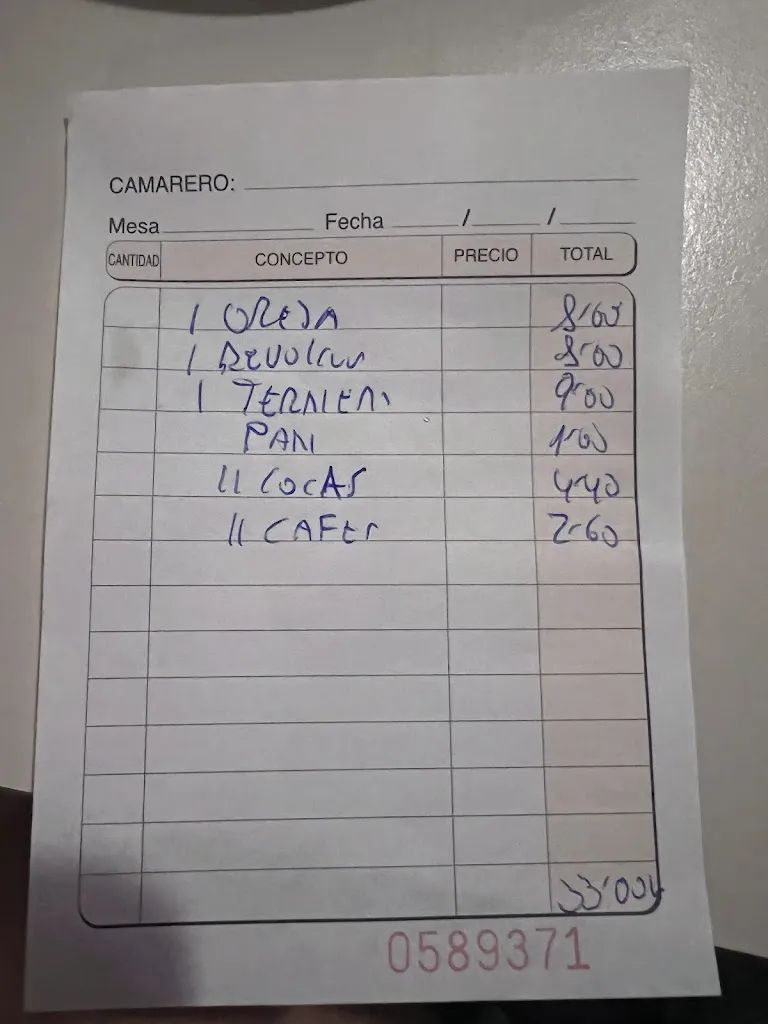 CAMARERO:
Mesa Fecha / /
CANTIDAD CONCEPTO PRECIO TOTAL
1 OREJA 8'00
1 8'00
1 TERNERA 9'00
PAN 1'00
11 COCAS 4'40
11 CAFES 2'60
33'00€
0589371